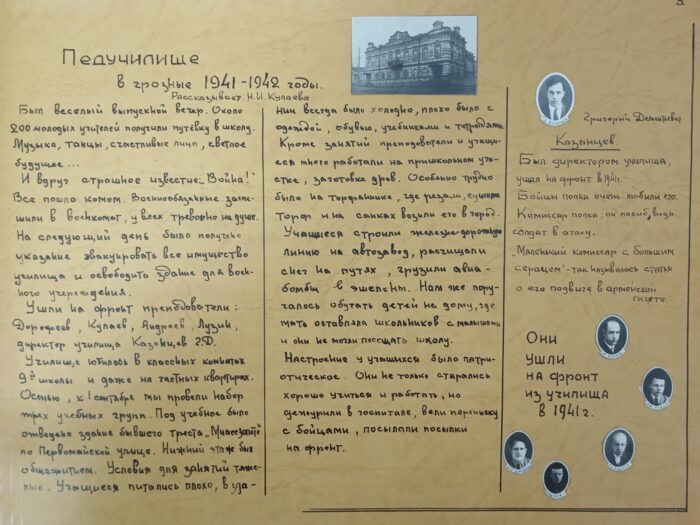 Педучилище
в грозные 1941-1942 годы.
Рассказывает Н.И. Кулаева
Был веселый выпускной вечер. Около
200 молодых учителей получили путёвку в школу.
Музыка, танцы, счастливые лица, светлое
будущее...
И вдруг страшное известие: „Война!"
Все пошло комом. Военнообязанные заспе-
шили в военкомат, у всех тревожно на душе.
На следующий день было получено
указание эвакуировать все имущество
училища и освободить здание для воен-
ного учреждения.
Ушли на фронт преподователи:
Дорофеев, Кулаев, Андреев, Лузин,
директор училища Казанцев Г.Д.
Училище ютилось в классных комнатах
9й школы и даже на частных квартирах.
Осенью, к 1 сентября мы провели набор
трех учебных групп. Под учебное было
отведено здание бывшего треста „Миассзолото"
по Первомайской улице. Нижний этаж был
общежитием. Условия для занятий тяже-
лые. Учащиеся питались плохо, в зда-
нии всегда было холодно, плохо было с
одеждой, обувью, учебниками и тетрадями.
Кроме занятий преподователи и учащи-
еся много работали на пришкольном уча-
стке, заготовке дров. Особенно трудно
было на торфянике, где резали, сушили
торф и на санках возили его в город.
Учащиеся строили железно-дорожную
линию на автозавод, расчищали
снег на путях, грузили авиа-
бомбы в эшелоны. Нам же пору-
чалось обучать детей на дому, где
мать оставляла школьников с малышами
и они не могли посещать школу.
Настроение у учащихся было патри-
отическое. Они не только старались
хорошо учиться и работать, но
дежурили в госпитале, вели переписку
с бойцами, посылали посылки
на фронт.
Григорий Дементьевич
Казанцев
Был директором училища,
ушел на фронт в 1941г.
Бойцы полка очень любили его.
Комиссар полка, он погиб, ведя
солдат в атаку.
„Маленький комиссар с большим
сердцем"- так называлась статья
о его подвиге в армейской
газете
Они
ушли
на фронт
из училища
в 1941г.